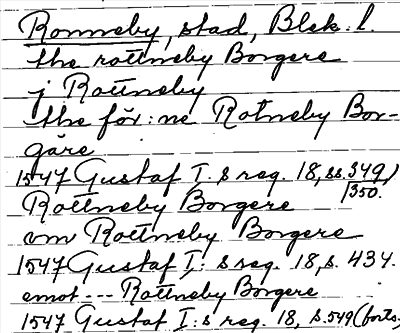 Ronneby, stad, Blek. l.
the rottneby Borgere
j Rottneby
the för:ne Rotneby Bor-
gåre
1547 Gustaf I:s reg. 18, ss. 349,
350.
Rottneby Borgere
om Rottneby Borgere
1547 Gustaf I:s reg. 18, s. 434.
emot --- Rottneby Borgere
1547 Gustaf I:s reg. 18, s. 549 (forts.